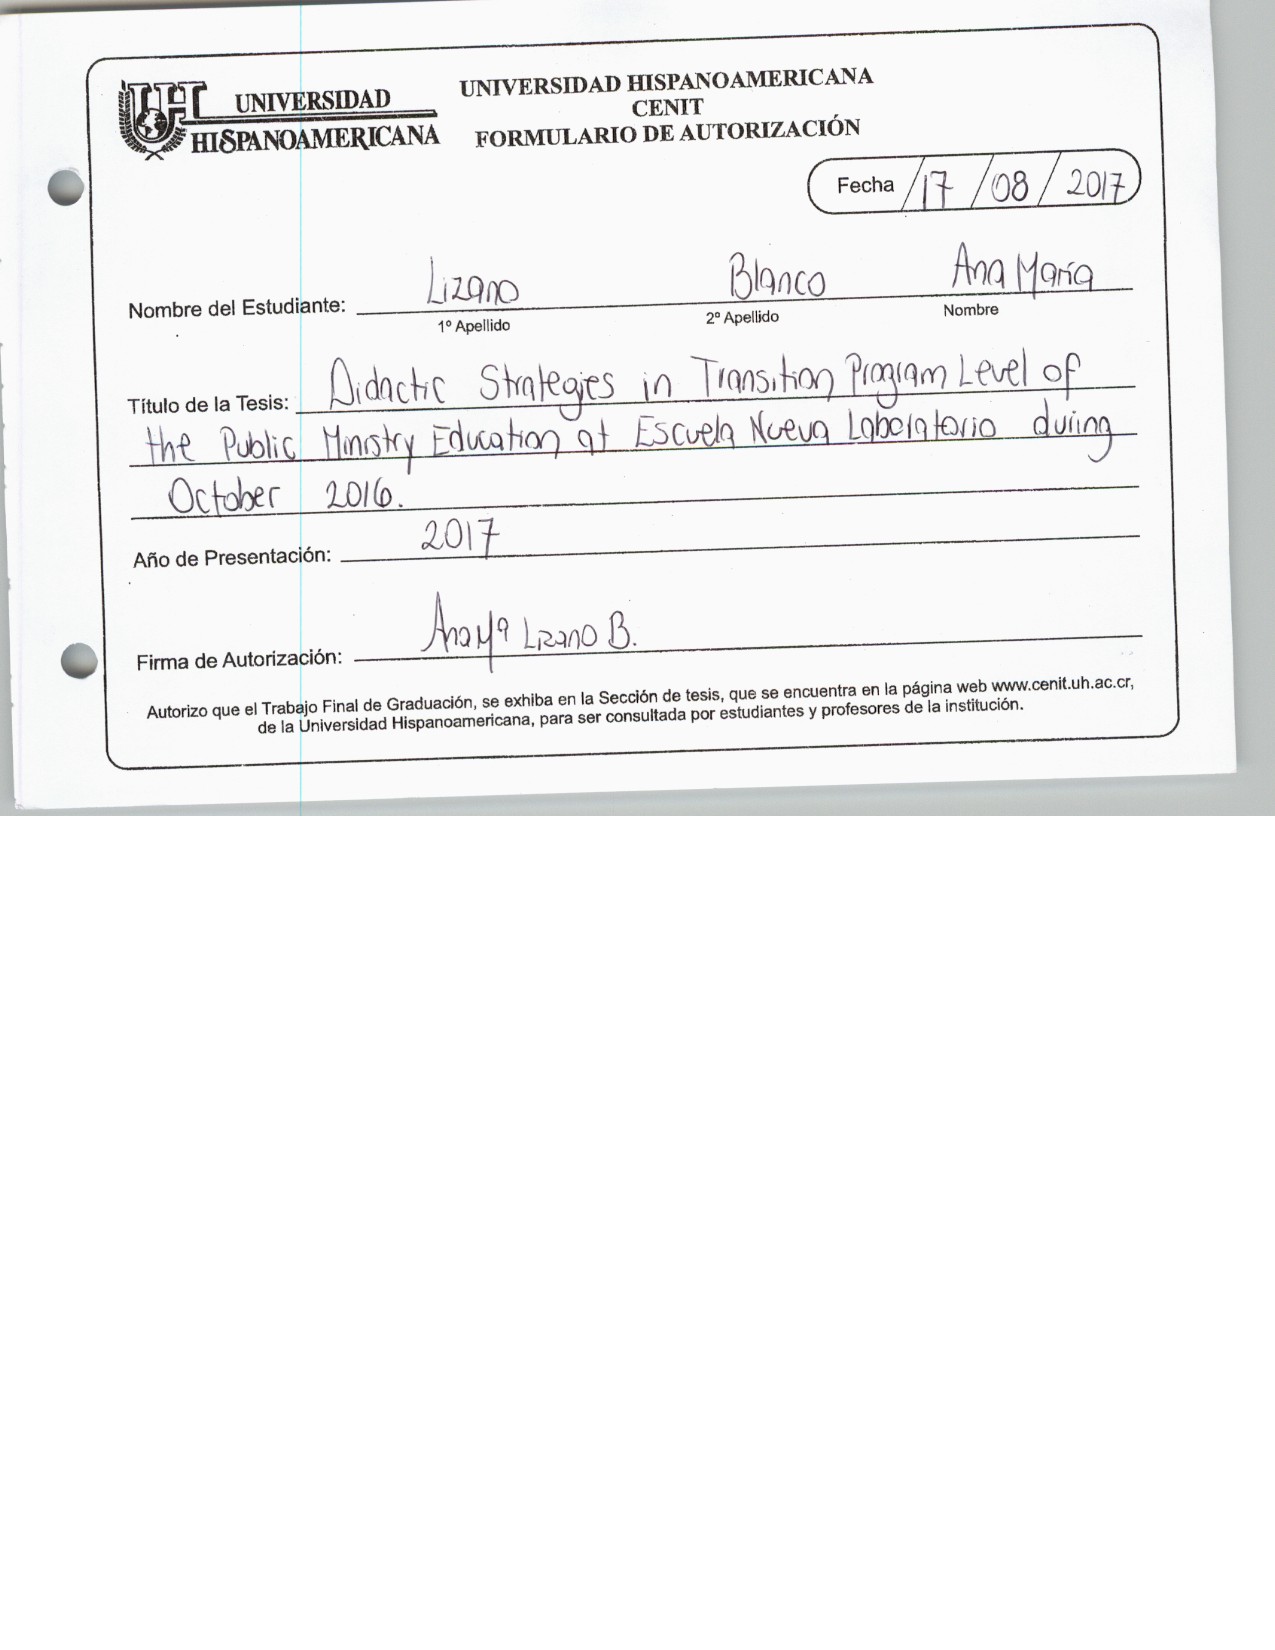 UH UNIVERSIDAD
HISPANOAMERICANA
UNIVERSIDAD HISPANOAMERICANA
CENIT
FORMULARIO DE AUTORIZACIÓN
Fecha /17/08/2017
Nombre del Estudiante: Lizano Blanco Ana María
1º Apellido 2º Apellido Nombre
Título de la Tesis: Didactic Strategies in Transition Program Level of
the Public Ministry Education at Escuela Nueva Laboratorio during
October 2016.
Año de Presentación: 2017
Firma de Autorización: Ana Mª Lizano B.
Autorizo que el Trabajo Final de Graduación, se exhiba en la Sección de tesis, que se encuentra en la página web www.cenit.uh.ac.cr,
de la Universidad Hispanoamericana, para ser consultada por estudiantes y profesores de la institución.